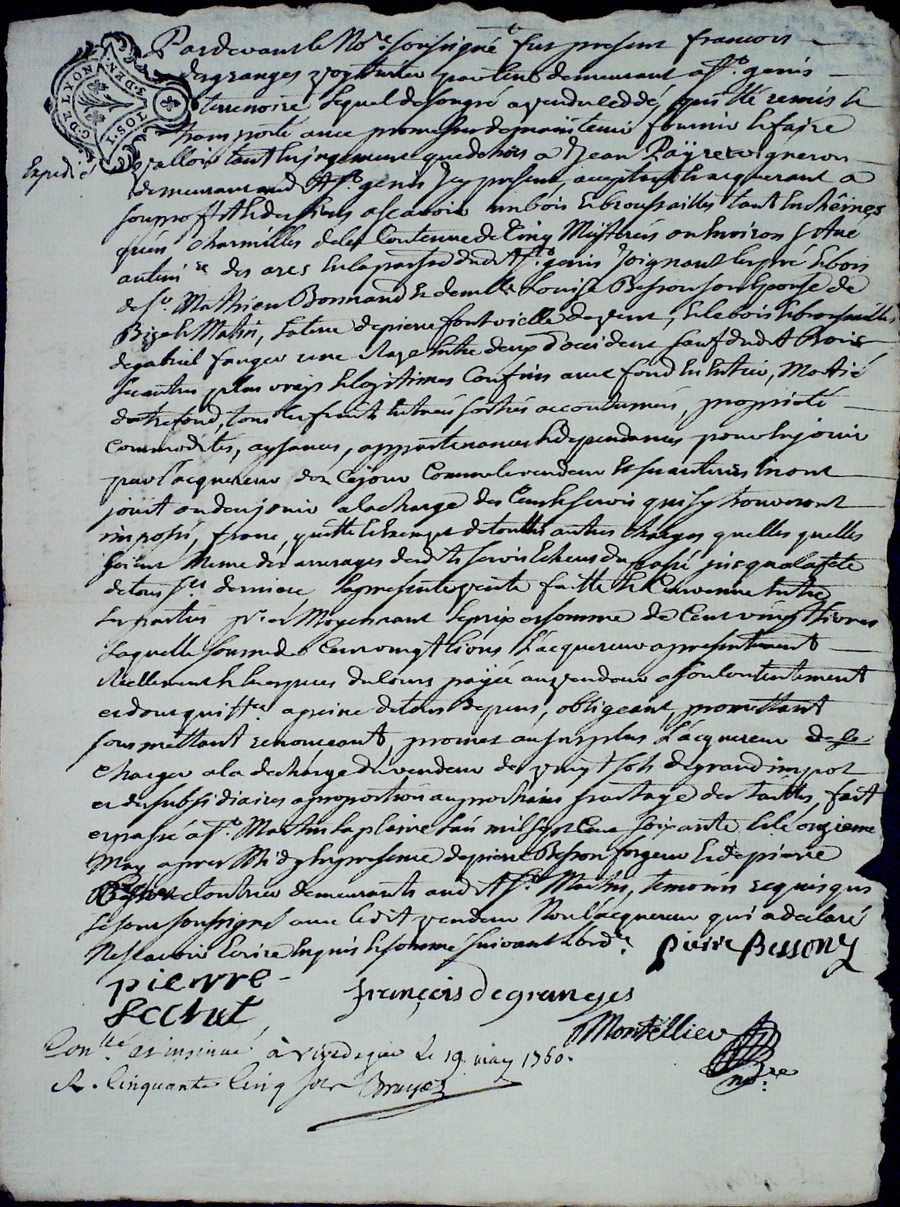 G. DE LYON. S. D. EN. 10S. 1
Pardevant le No.re soussigné fut present francois
degranges voyturier par terre demeurant a St. genis
terrenoire Lequel de son gré a vendu cedé, quitté remis et
transporté avec promesse de maintenir fournir et faire
Expedié
valloir tant en jugement que dehors a Jean Payre vigneron
demeurant aud. St. genis Icy present, acceptant et acquerant a
son proffit et des siens ascavoir un bois et broussailles tant en chênes
qu'en charmilles de la Contenue de Cinq Meyterées ou environ situé
au des arcs en la parroisse dud. St. genis joignant les pré et bois
de Sr. Mathieu Bonnand et de Louise Besson son Epouse de
Bize et Matin, la terre de pierre fontvielle de vent, et le bois et broussailles
de gabriel fanger une Raze entre deux d'occident sauf dud. Bois
ses autres plus vrays et legitimes Confins avec fond en entier, Moitié
dotrefond, tous les fruit entrées sorties accoutumés, proprieté
commodités, aysances, appartenances et dependances pour en jouir
par l'acquereur dez Cejour Comme le vendeur et ses auteurs en ont
jouit ou deu jouir a la charge des Cens et servis qui s'y trouveront
imposés, franc, quitte et exempt de touttes autres charges quelles quelles
soient Meme des arrerages desdits servis Echeus du passé jusqu'a la fete
de tous Sts. derniere la presente vente faitte et Convenue entre
les parties Moyennant le prix et somme de Cent vingt livres
Laquelle somme de Cent vingt livres L'acquereur a presentement
Reellement et en especes du Cours payée au vendeur a son contentement
et dont quitte a peine de tous depens, obligeant, promettant
soumettant renonceant, promet au surplus L'acquereur de se
charger a la decharge du vendeur de vingt sols de grand impot
et des subsidiaires a proportion au prochain partage des tailles, fait
et passé a St. Martin la plaine l'an mil sept Cent soixante et le onzieme
May apres Midy En presence de pierre Besson forgeur et de pierre
demeurants aud. St. Martin, temoins requis qui
se sont soussignés avec led. vendeur Non l'acquereur qui a declaré
Ne scavoir Ecrire Enquis et sommé suivant l'ord.e
pierre Bessony
pierre
françois degranges
Montellier
no.re
Conlle. et insinué à Rivedegier Le 19. may 1760.
R. Cinquante Cinq sols